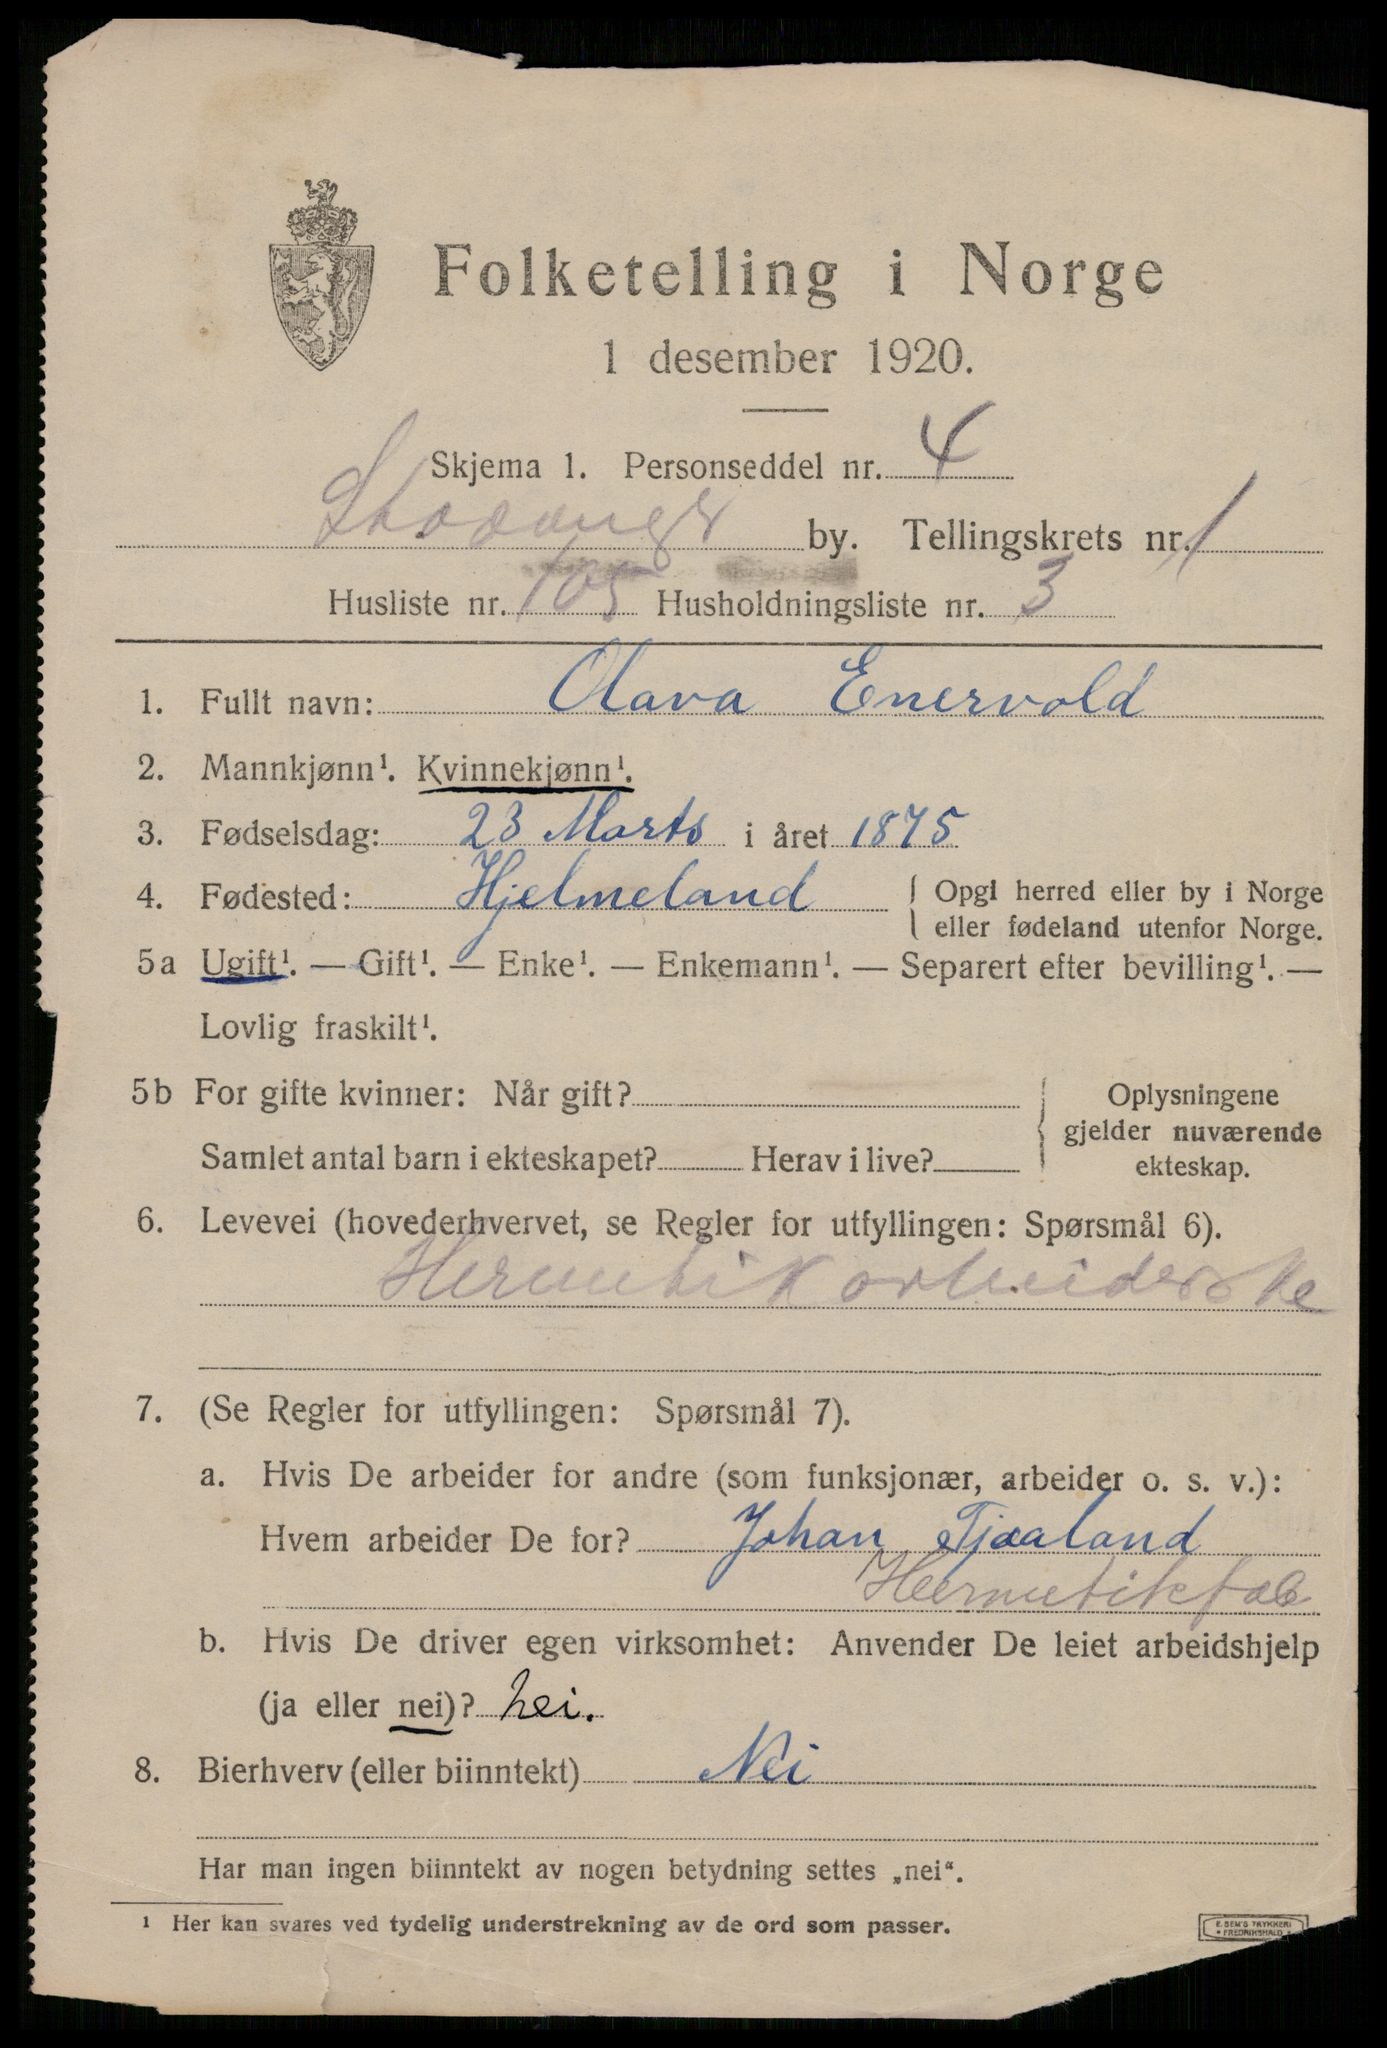 Folketelling i Norge
1 desember 1920.
Skjema 1. Personseddel nr. 4
Stavanger by. Tellingskrets nr. 1
Husliste nr. 105 Husholdningsliste nr. 3
1. Fullt navn: Olava Enervold
2. Mannkjønn¹. Kvinnekjønn¹.
3. Fødselsdag: 23 Marts i året 1875
4. Fødested: Hjelmeland { Opgi herred eller by i Norge
eller fødeland utenfor Norge.
5a Ugift¹. — Gift¹. — Enke¹. — Enkemann¹. — Separert efter bevilling¹. —
Lovlig fraskilt¹.
5b For gifte kvinner: Når gift? { Oplysningene
gjelder nuværende
Samlet antal barn i ekteskapet? Herav i live? ekteskap.
6. Levevei (hovederhvervet, se Regler for utfyllingen: Spørsmål 6).
Hermetikarbeiderske
7. (Se Regler for utfyllingen: Spørsmål 7).
a. Hvis De arbeider for andre (som funksjonær, arbeider o. s. v.):
Hvem arbeider De for? Johan Tjaaland
Hermetikfab
b. Hvis De driver egen virksomhet: Anvender De leiet arbeidshjelp
(ja eller nei)? nei.
8. Bierhverv (eller biinntekt) Nei
Har man ingen biinntekt av nogen betydning settes „nei“.
¹ Her kan svares ved tydelig understrekning av de ord som passer.
E. SEM'S TRYKKERI
FREDRIKSHALD